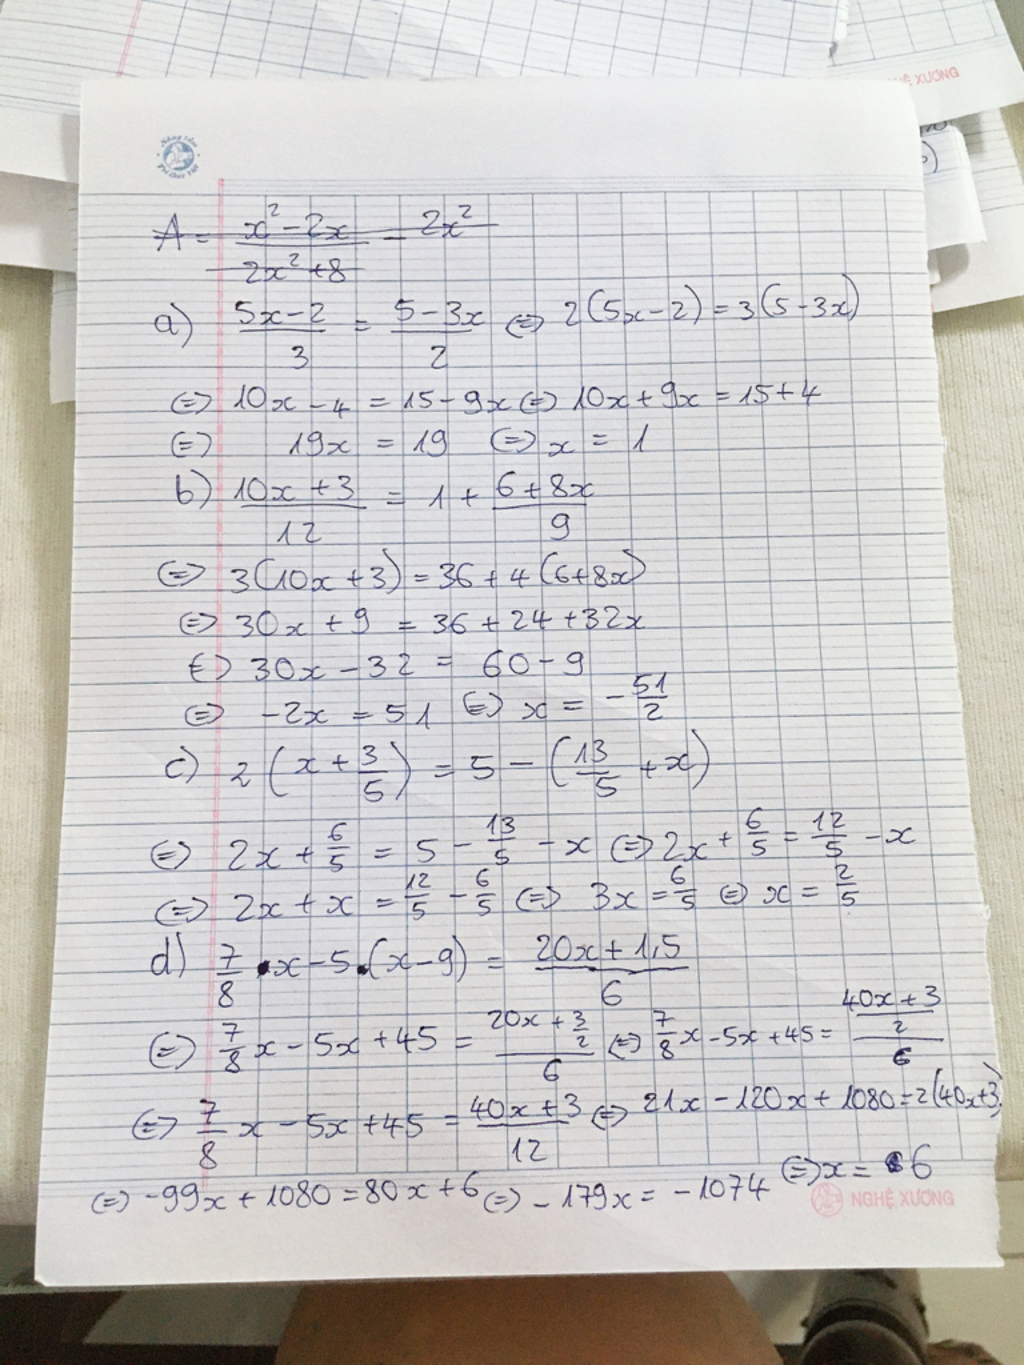 Ệ XƯƠNG
A = (x² - 2x)/(2x² + 8) - 2x²
a) (5x - 2)/3 = (5 - 3x)/2 ⇔ 2(5x - 2) = 3(5 - 3x)
⇔ 10x - 4 = 15 - 9x ⇔ 10x + 9x = 15 + 4
⇔ 19x = 19 ⇔ x = 1
b) (10x + 3)/12 = 1 + (6 + 8x)/9
⇔ 3(10x + 3) = 36 + 4(6 + 8x)
⇔ 30x + 9 = 36 + 24 + 32x
⇔ 30x - 32 = 60 - 9
⇔ -2x = 51 ⇔ x = -51/2
c) 2(x + 3/5) = 5 - (13/5 + x)
⇔ 2x + 6/5 = 5 - 13/5 - x ⇔ 2x + 6/5 = 12/5 - x
⇔ 2x + x = 12/5 - 6/5 ⇔ 3x = 6/5 ⇔ x = 2/5
d) 7/8 · x - 5 · (x - 9) = (20x + 1,5)/6
⇔ 7/8 x - 5x + 45 = (20x + 3/2)/6 ⇔ 7/8 x - 5x + 45 = ((40x + 3)/2)/6
⇔ 7/8 x - 5x + 45 = (40x + 3)/12 ⇔ 21x - 120x + 1080 = 2(40x + 3)
⇔ -99x + 1080 = 80x + 6 ⇔ -179x = -1074 ⇔ x = 6
NGHỆ XƯƠNG